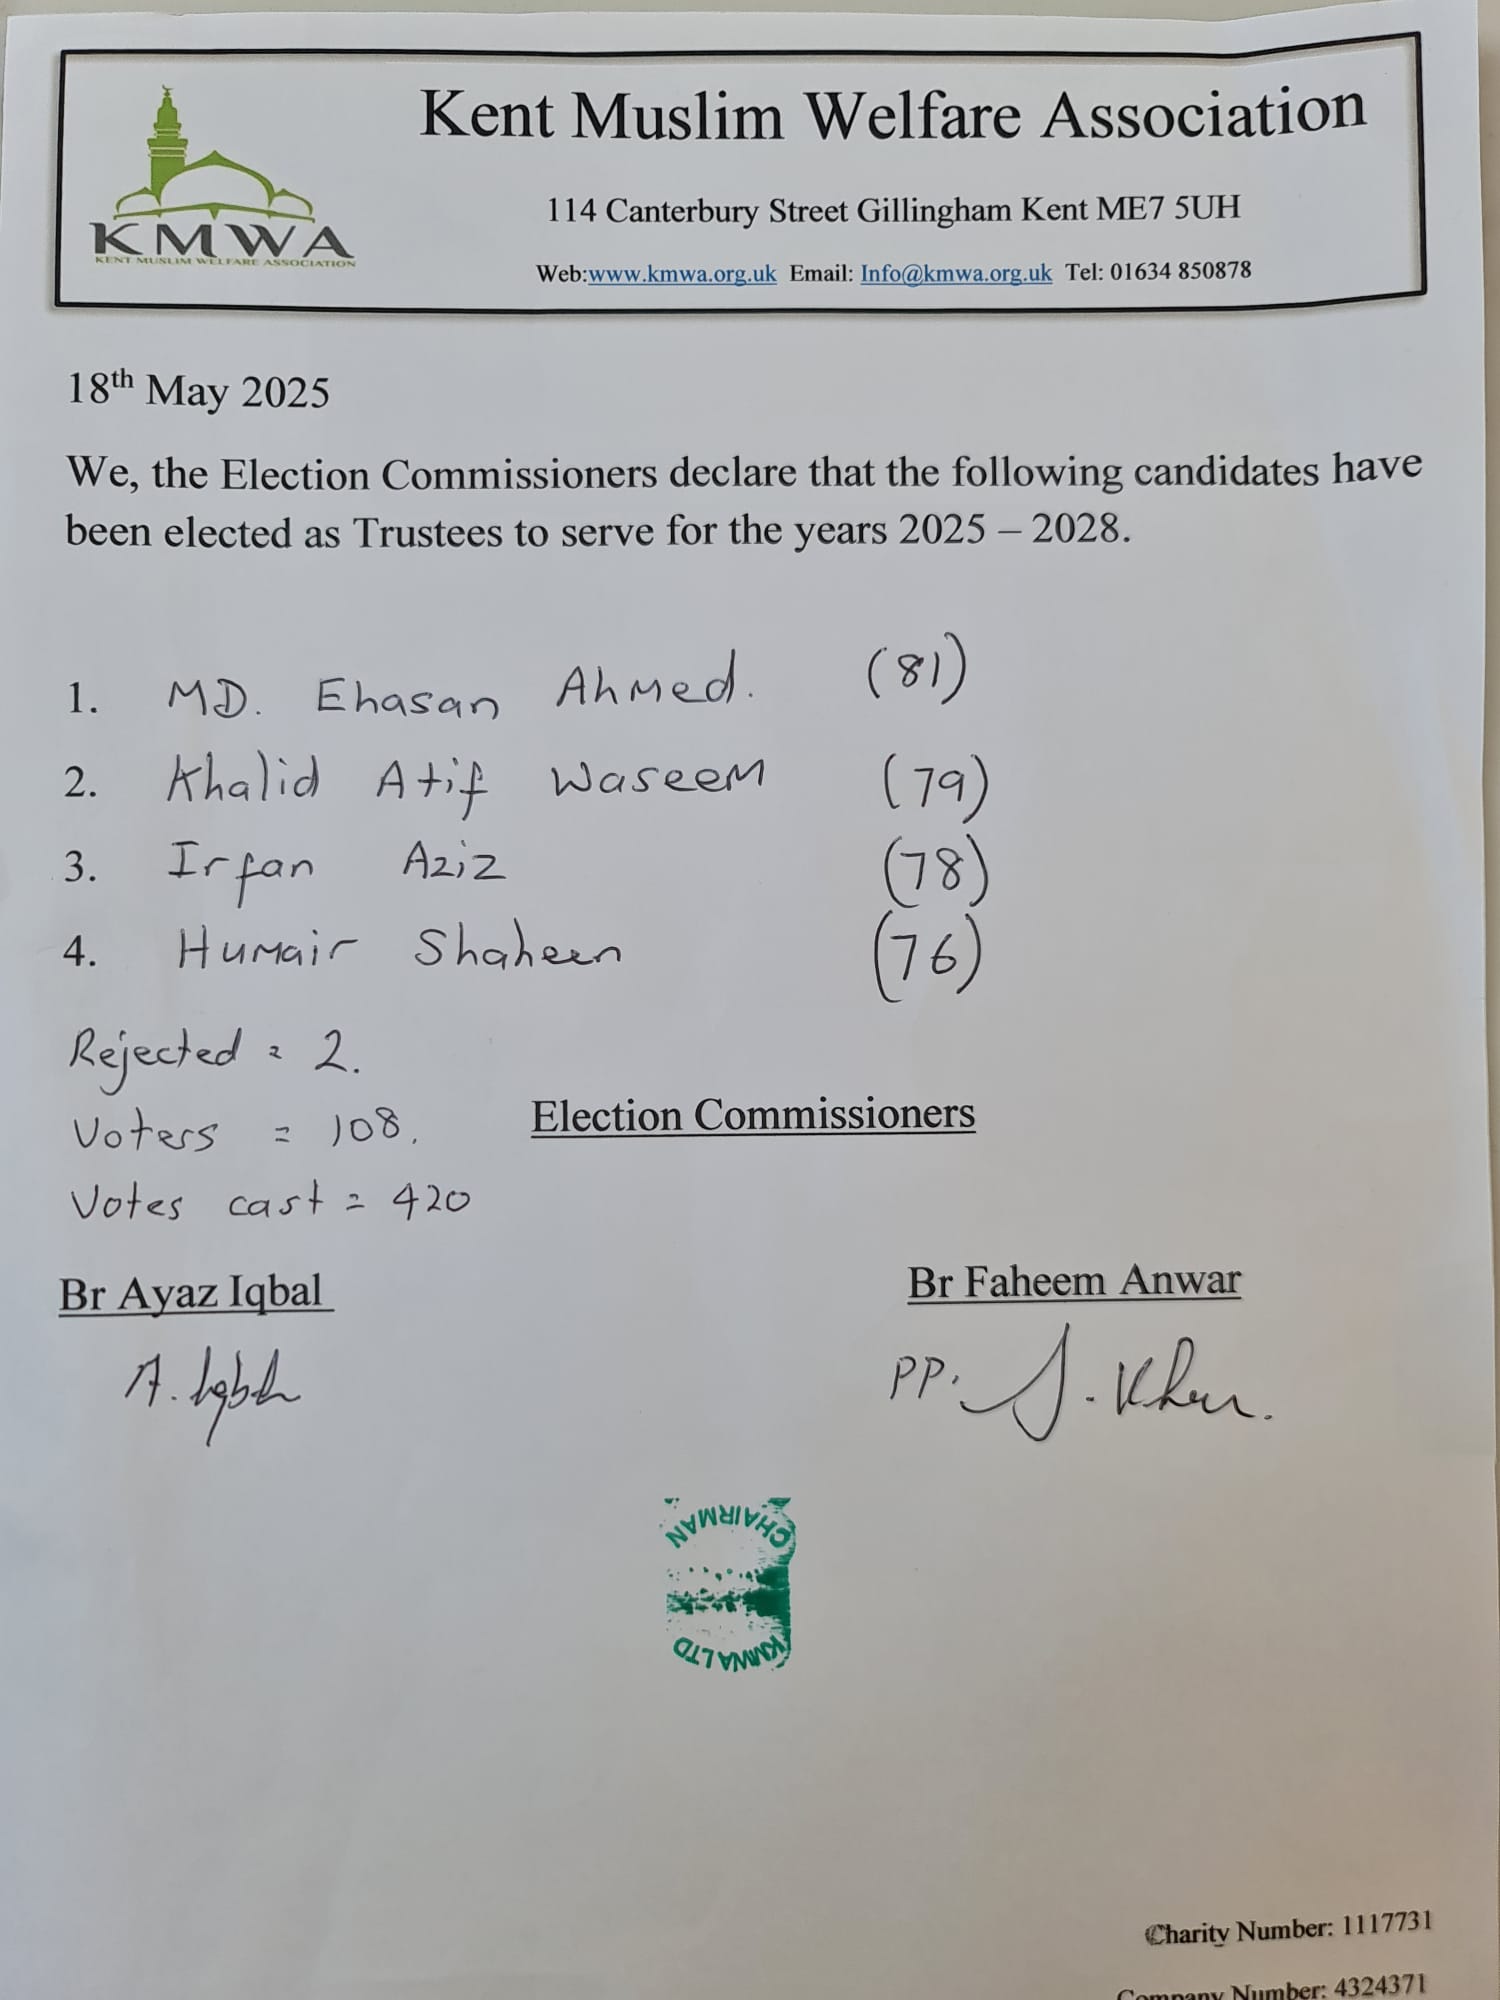 KMWA
KENT MUSLIM WELFARE ASSOCIATION
Kent Muslim Welfare Association
114 Canterbury Street Gillingham Kent ME7 5UH
Web:www.kmwa.org.uk Email: Info@kmwa.org.uk Tel: 01634 850878
18th May 2025
We, the Election Commissioners declare that the following candidates have
been elected as Trustees to serve for the years 2025 – 2028.
1. MD. Ehasan Ahmed. (81)
2. Khalid Atif Waseem (79)
3. Irfan Aziz (78)
4. Humair Shaheen (76)
Rejected = 2.
Voters = 108.
Election Commissioners
Votes cast = 420
Br Ayaz Iqbal
Br Faheem Anwar
A. Iqbal
PP. J. Khan.
CHAIRMAN
KMWA LTD
Charity Number: 1117731
Company Number: 4324371